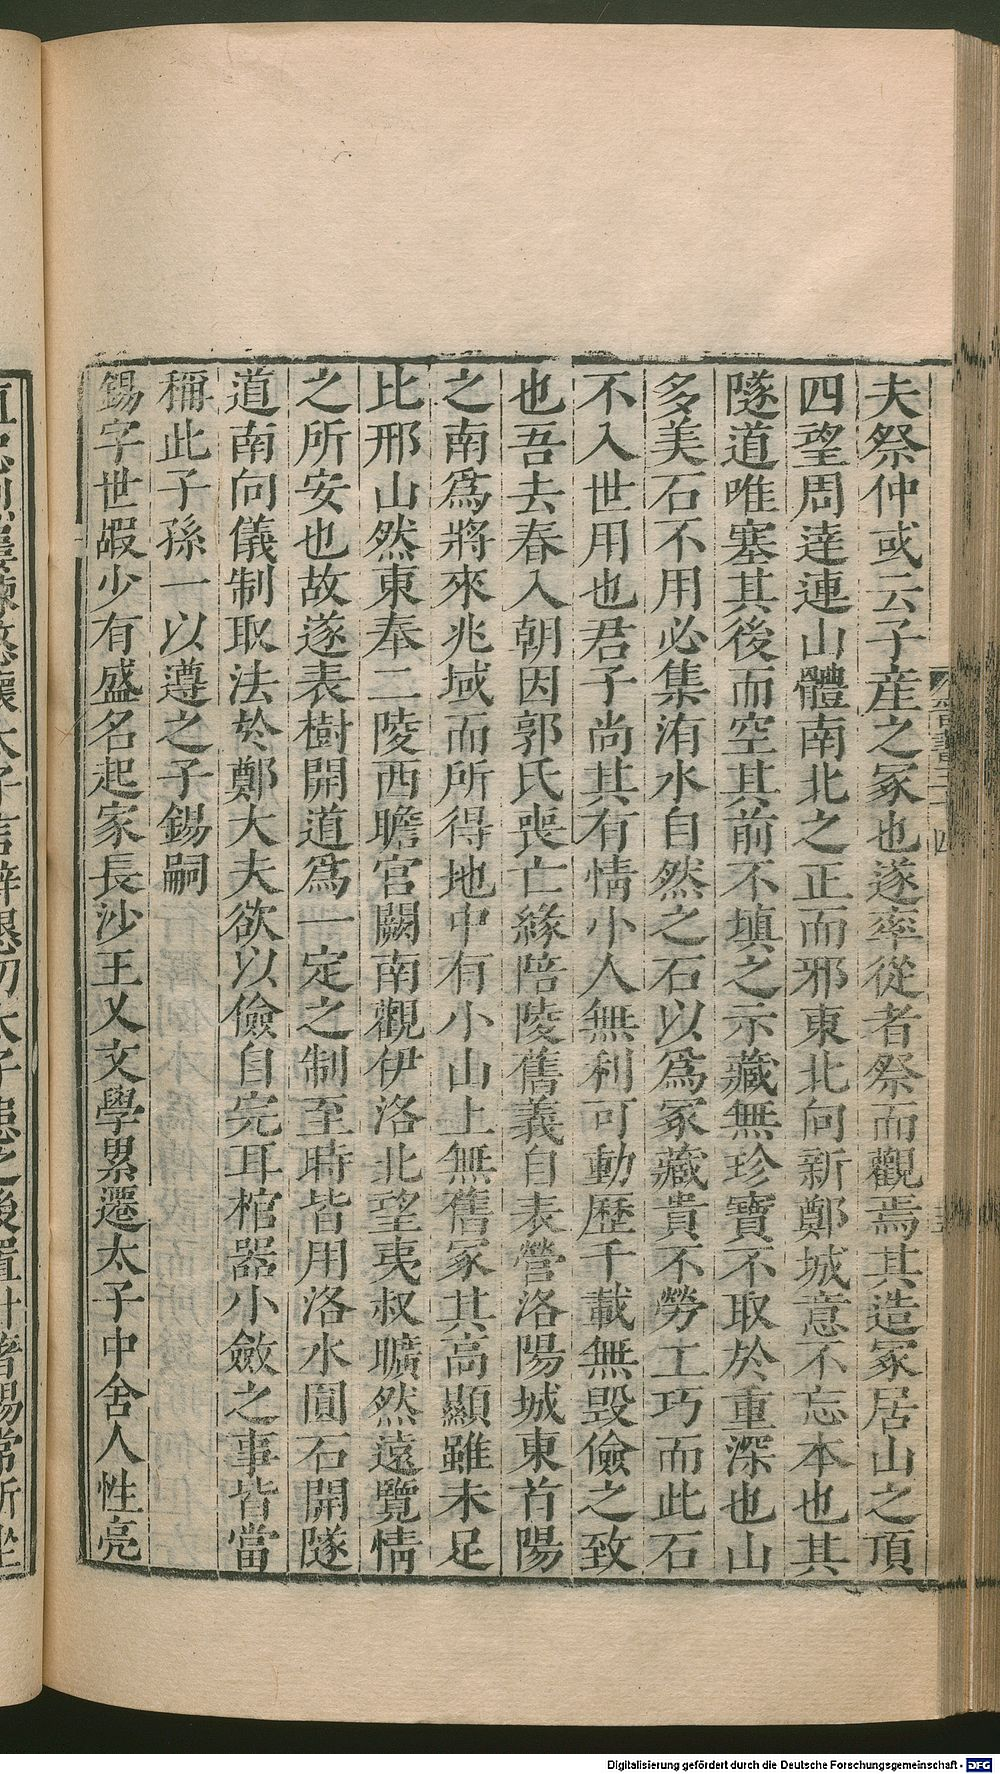 夫祭仲或云子産之冢也遂率從者祭而觀焉其造冢居山之頂
四望周逹連山體南北之正而邪東北向新鄭城意不忘本也其
隧道唯塞其後而空其前不填之示藏無珍寶不取於重深也山
多美石不用必集洧水自然之石以爲冢藏貴不勞工巧而此石
不入世用也君子尚其有情小人無利可動歷千載無毁儉之致
也吾去春入朝因郭氏喪亡緣陪陵舊義自表營洛陽城東首陽
之南爲將來兆域而所得地中有小山上無舊冢其高顯雖未足
比邢山然東奉二陵西瞻宫闕南觀伊洛北望夷叔曠然遠覽情
之所安也故遂表樹開道爲一定之制至時皆用洛水圓石開隧
道南向儀制取法於鄭大夫欲以儉自完耳棺器小斂之事皆當
稱此子孫一以遵之子錫嗣
錫字世嘏少有盛名起家長沙王乂文學累遷太子中舍人性亮
Digitalisierung gefördert durch die Deutsche Forschungsgemeinschaft - DFG